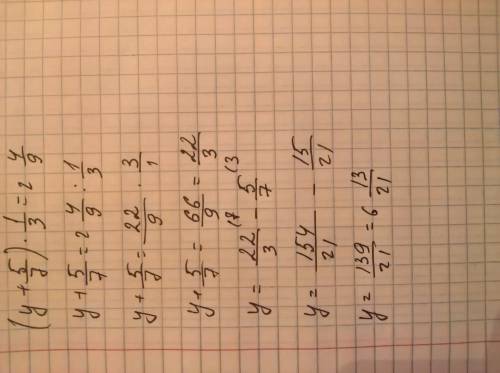 (y + 5/7) · 1/3 = 2 4/9
y + 5/7 = 2 4/9 · 1/3
y + 5/7 = 22/9 · 3/1
y + 5/7 = 66/9 = 22/3
y = 22/3 (7 - 5/7 (3
y = 154/21 - 15/21
y = 139/21 = 6 13/21